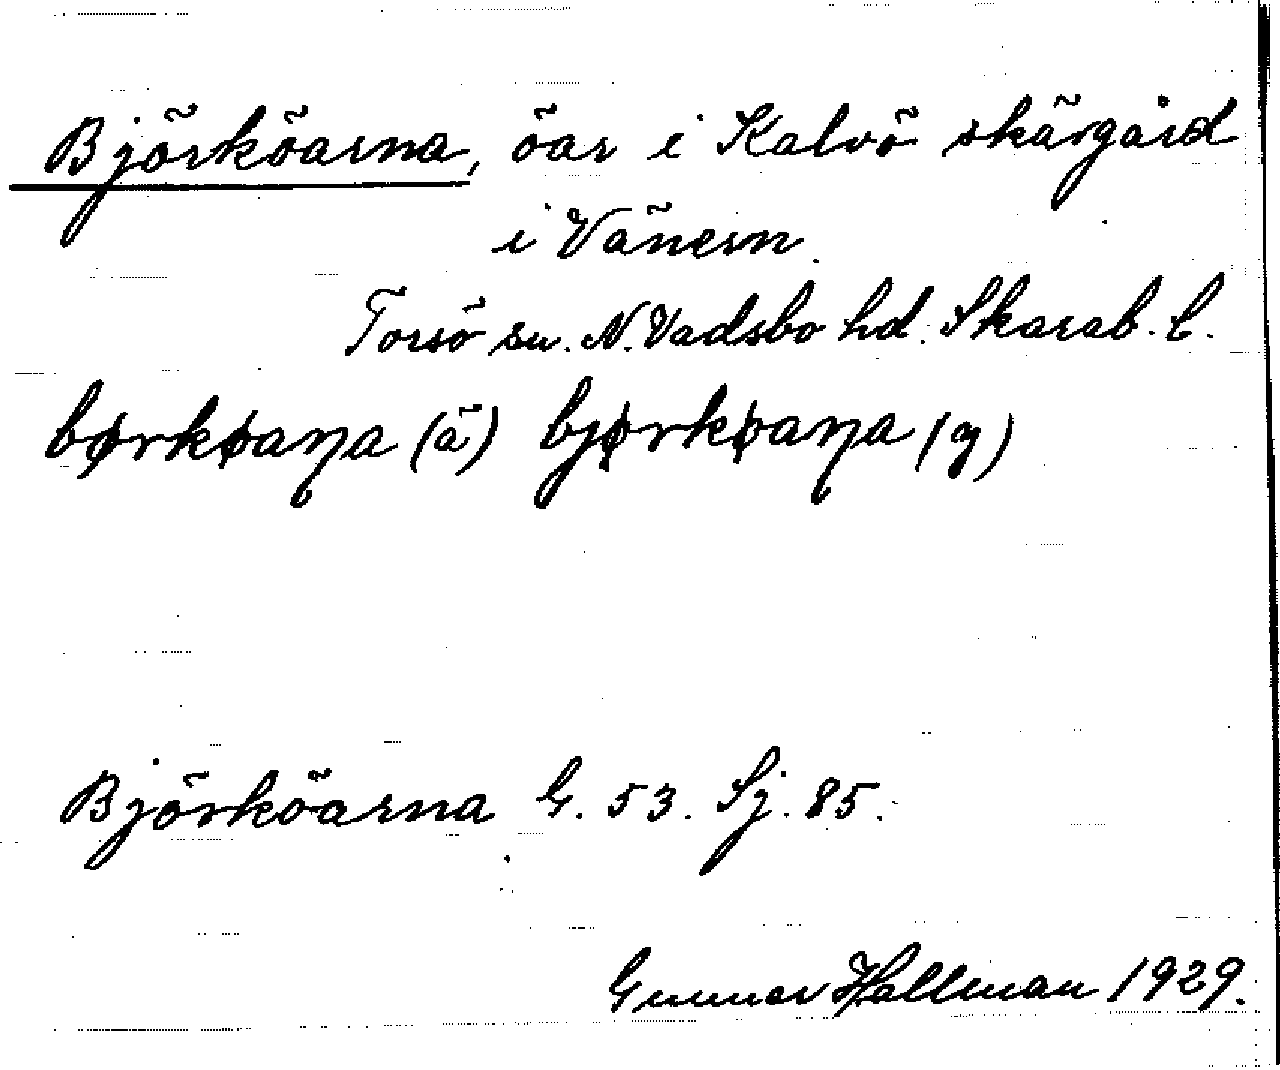 Björköarna, öar i Kalvö skärgård
i Vänern.
Torsö sn. N. Vadsbo hd. Skarab. l.
børkøaŋa (ä) bjørkøaŋa (y)
Björköarna G. 53. Sj. 85.
Gunnar Hallman 1929.